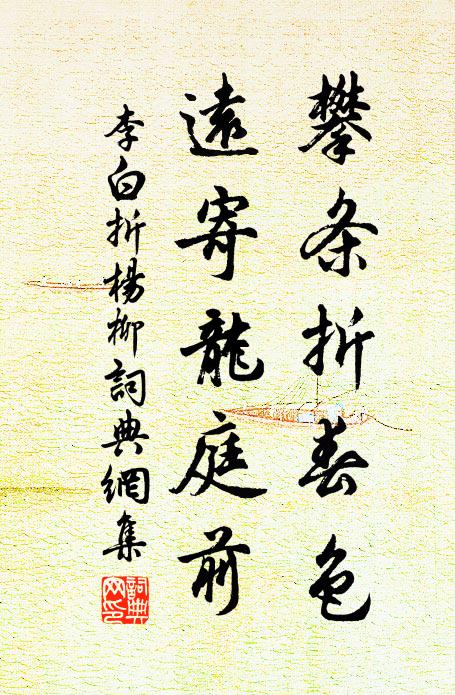 攀条折春色
遠寄龍庭前
李白折楊柳詞典網集
詞典网印